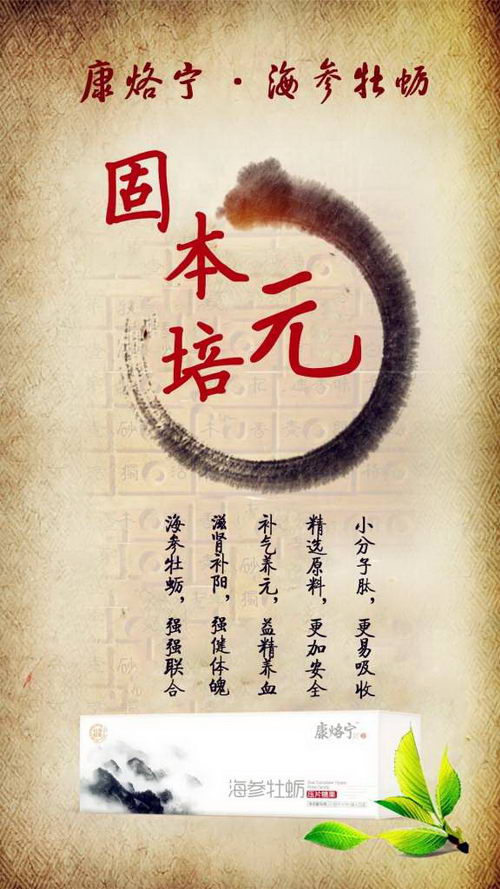 康烙宁·海参牡蛎
固本培元
海参牡蛎，强强联合
滋肾补阳，强健体魄
补气养元，益精养血
精选原料，更加安全
小分子肽，更易吸收
康烙宁
海参牡蛎
压片糖果